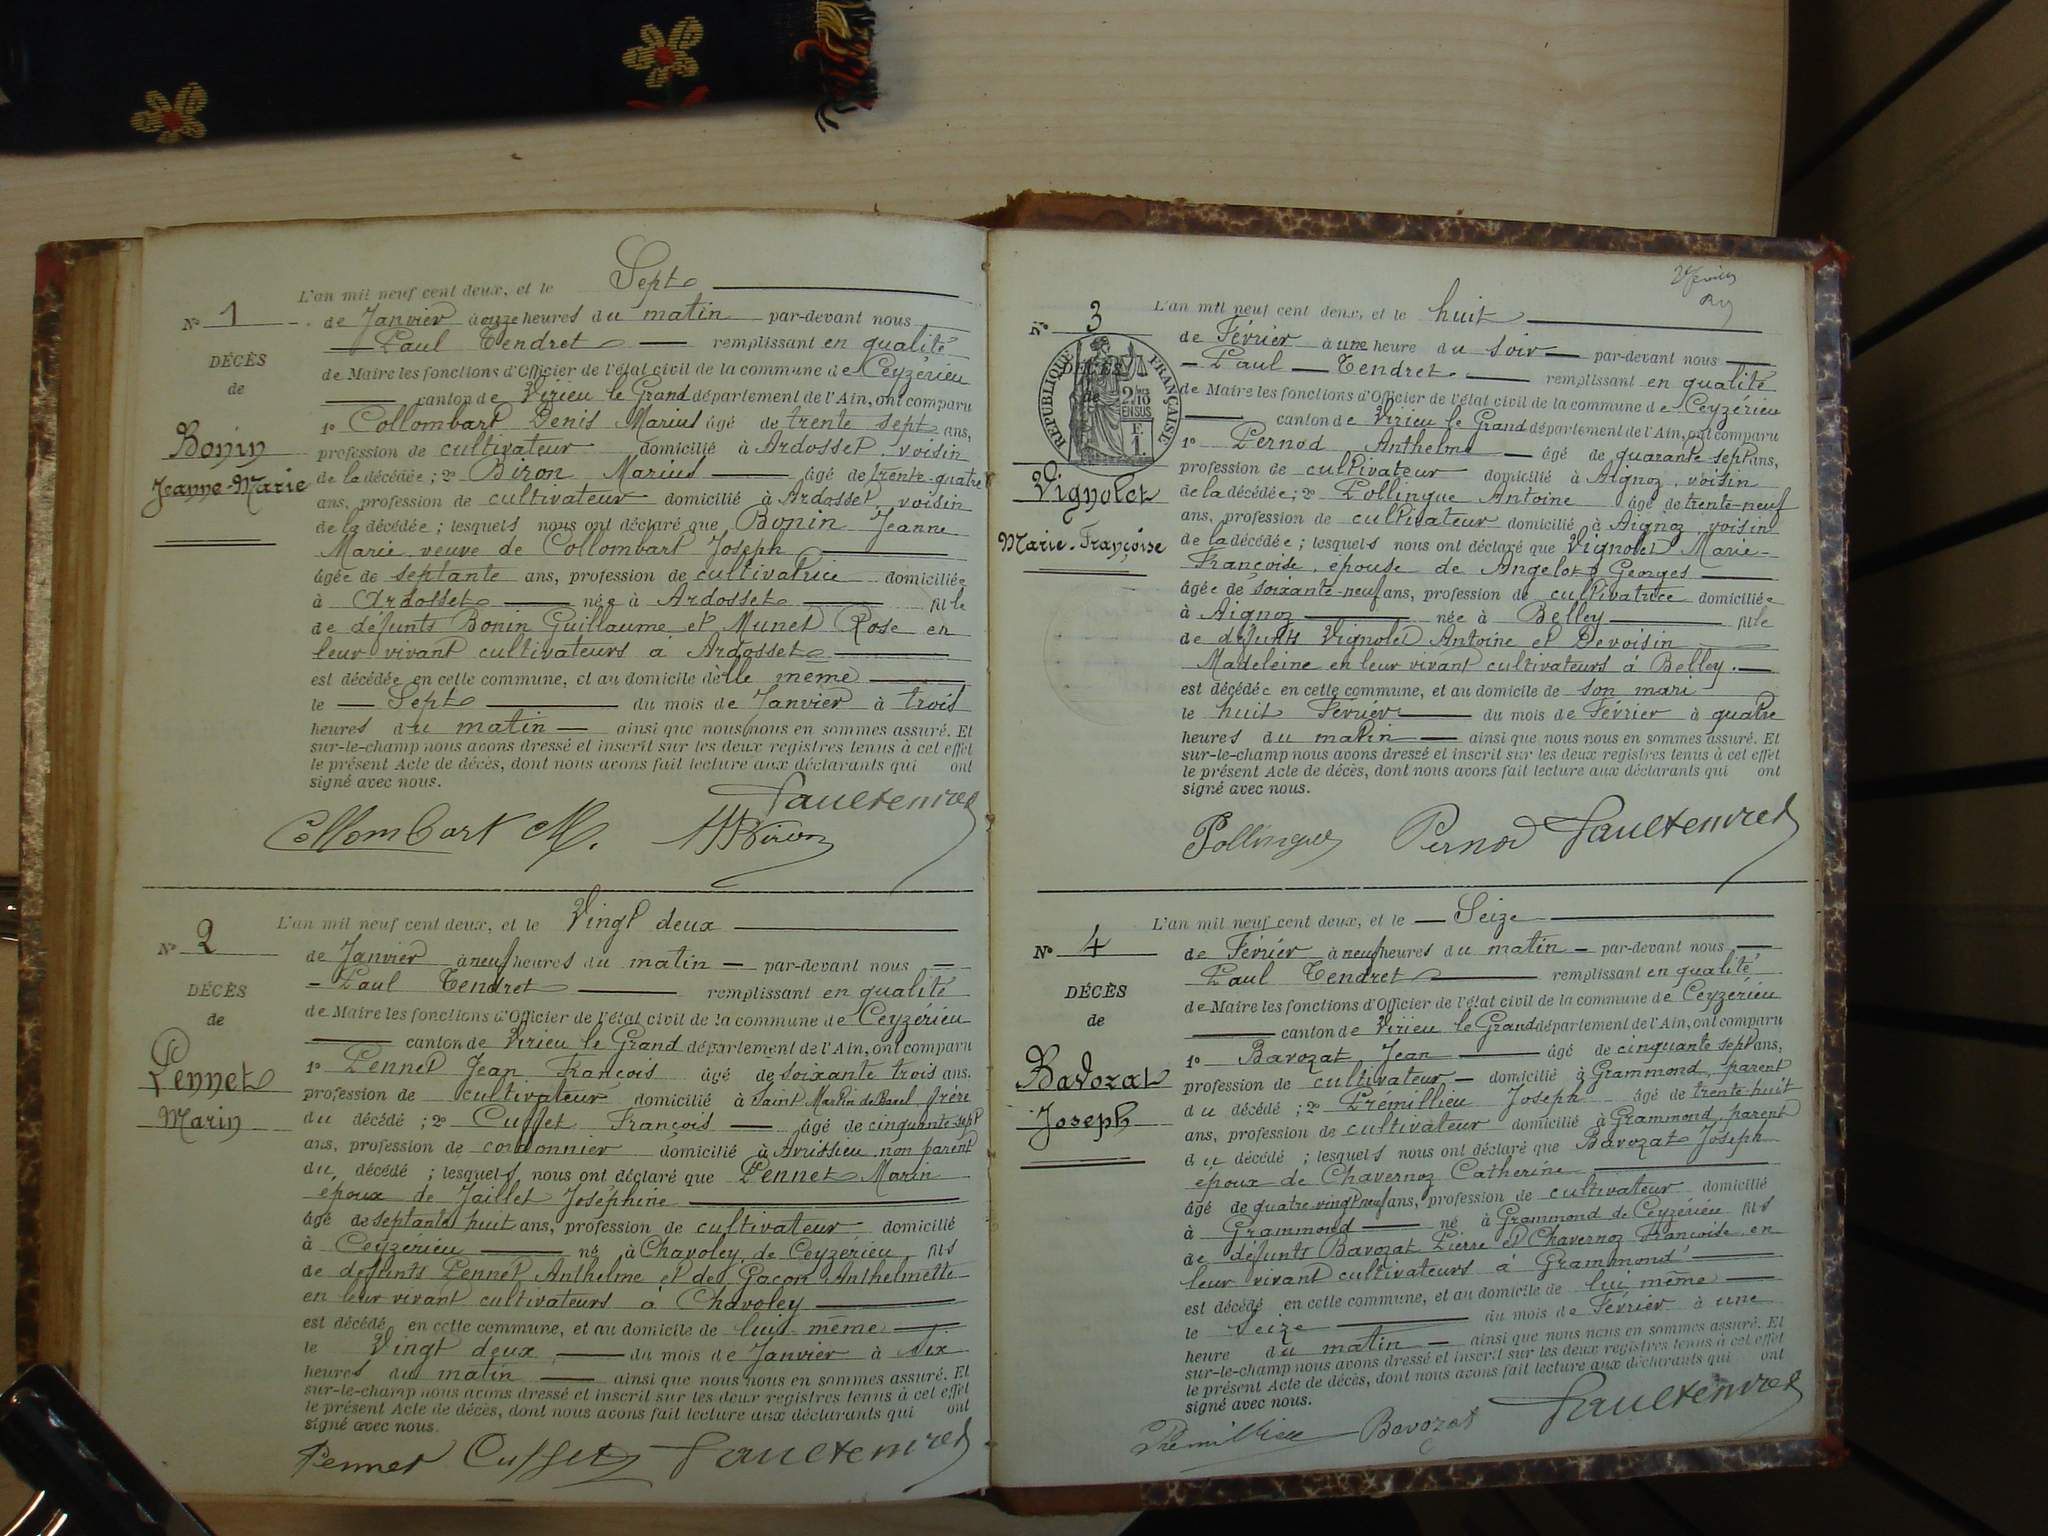 L'an mil neuf cent deux, et le Sept
No 1 de Janvier à onze heures du matin par-devant nous
Paul Tendret remplissant en qualité
DÉCÈS
de Maire les fonctions d'Officier de l'état civil de la commune de Ceyzérieu
de
canton de Virieu le Grand département de l'Ain, ont comparu
1o Collombart Denis Marius âgé de trente sept ans,
Bonin
profession de cultivateur domicilié à Ardosset, voisin
Jeanne-Marie
de la décédée; 2o Biron Marius âgé de trente-quatre
ans, profession de cultivateur domicilié à Ardosset, voisin
de la décédée; lesquels nous ont déclaré que Bonin Jeanne
Marie veuve de Collombart Joseph
âgée de septante ans, profession de cultivatrice domiciliée
à Ardosset née à Ardosset fille
de défunts Bonin Guillaume et Munet Rose en
leur vivant cultivateurs à Ardosset
est décédée en cette commune, et au domicile d'elle même
le Sept du mois de Janvier à trois
heures du matin ainsi que nous nous en sommes assuré. Et
sur-le-champ nous avons dressé et inscrit sur les deux registres tenus à cet effet
le présent Acte de décès, dont nous avons fait lecture aux déclarants qui ont
signé avec nous.
Paul Tendret
Collombart M. Biron
L'an mil neuf cent deux, et le Vingt deux
No 2
de Janvier à neuf heures du matin par-devant nous
Paul Tendret remplissant en qualité
DÉCÈS
de Maire les fonctions d'Officier de l'état civil de la commune de Ceyzérieu
de
canton de Virieu le Grand département de l'Ain, ont comparu
1o Pennet Jean François âgé de soixante trois ans.
Pennet
profession de cultivateur domicilié à Saint Martin de Bavel, frère
Marin
du décédé; 2o Cusset François âgé de cinquante-sept
ans, profession de cordonnier domicilié à Avrissieu non parent
du décédé; lesquels nous ont déclaré que Pennet Marin
époux de Jaillet Joséphine
âgé de septante huit ans, profession de cultivateur domicilié
à Ceyzérieu né à Chavoley de Ceyzérieu fils
de défunts Pennet Anthelme et de Gacon Anthelmette
en leur vivant cultivateurs à Chavoley
est décédé en cette commune, et au domicile de lui-même
le Vingt deux du mois de Janvier à six
heures du matin ainsi que nous nous en sommes assuré. Et
sur-le-champ nous avons dressé et inscrit sur les deux registres tenus à cet effet
le présent Acte de décès, dont nous avons fait lecture aux déclarants qui ont
signé avec nous.
Pennet Cusset Paul Tendret
L'an mil neuf cent deux, et le huit
No 3
de Février à une heure du soir par-devant nous
Paul Tendret remplissant en qualité
DÉCÈS
de
RÉPUBLIQUE FRANÇAISE
2/10 EN SUS
F. 1.
de Maire les fonctions d'Officier de l'état civil de la commune de Ceyzérieu
canton de Virieu le Grand département de l'Ain, ont comparu
1o Pernod Anthelme âgé de quarante-sept ans,
profession de cultivateur domicilié à Aignoz, voisin
Vignolet
de la décédée; 2o Pollingue Antoine âgé de trente-neuf
ans, profession de cultivateur domicilié à Aignoz voisin
Marie-Françoise
de la décédée; lesquels nous ont déclaré que Vignolet Marie-
Françoise, épouse de Angelot Georges
âgée de soixante-neuf ans, profession de cultivatrice domiciliée
à Aignoz née à Belley fille
de défunts Vignolet Antoine et Devoisin
Madeleine en leur vivant cultivateurs à Belley.
est décédée en cette commune, et au domicile de son mari
le huit Février du mois de Février à quatre
heures du matin ainsi que nous nous en sommes assuré. Et
sur-le-champ nous avons dressé et inscrit sur les deux registres tenus à cet effet
le présent Acte de décès, dont nous avons fait lecture aux déclarants qui ont
signé avec nous.
Pollingue Pernod Paul Tendret
L'an mil neuf cent deux, et le Seize
No 4
de Février à neuf heures du matin par-devant nous
Paul Tendret remplissant en qualité
DÉCÈS
de Maire les fonctions d'Officier de l'état civil de la commune de Ceyzérieu
de
canton de Virieu le Grand département de l'Ain, ont comparu
1o Bavozat Jean âgé de cinquante sept ans,
Bavozat
profession de cultivateur domicilié à Grammond, parent
Joseph
du décédé; 2o Prémillieu Joseph âgé de trente-huit
ans, profession de cultivateur domicilié à Grammond, parent
du décédé; lesquels nous ont déclaré que Bavozat Joseph
époux de Chavernoz Catherine
âgé de quatre vingt neuf ans, profession de cultivateur domicilié
à Grammond né à Grammond de Ceyzérieu fils
de défunts Bavozat Pierre et Chavernoz Françoise en
leur vivant cultivateurs à Grammond
est décédé en cette commune, et au domicile de lui même
le Seize du mois de Février à une
heure du matin ainsi que nous nous en sommes assuré. Et
sur-le-champ nous avons dressé et inscrit sur les deux registres tenus à cet effet
le présent Acte de décès, dont nous avons fait lecture aux déclarants qui ont
signé avec nous.
Prémillieu Bavozat Paul Tendret